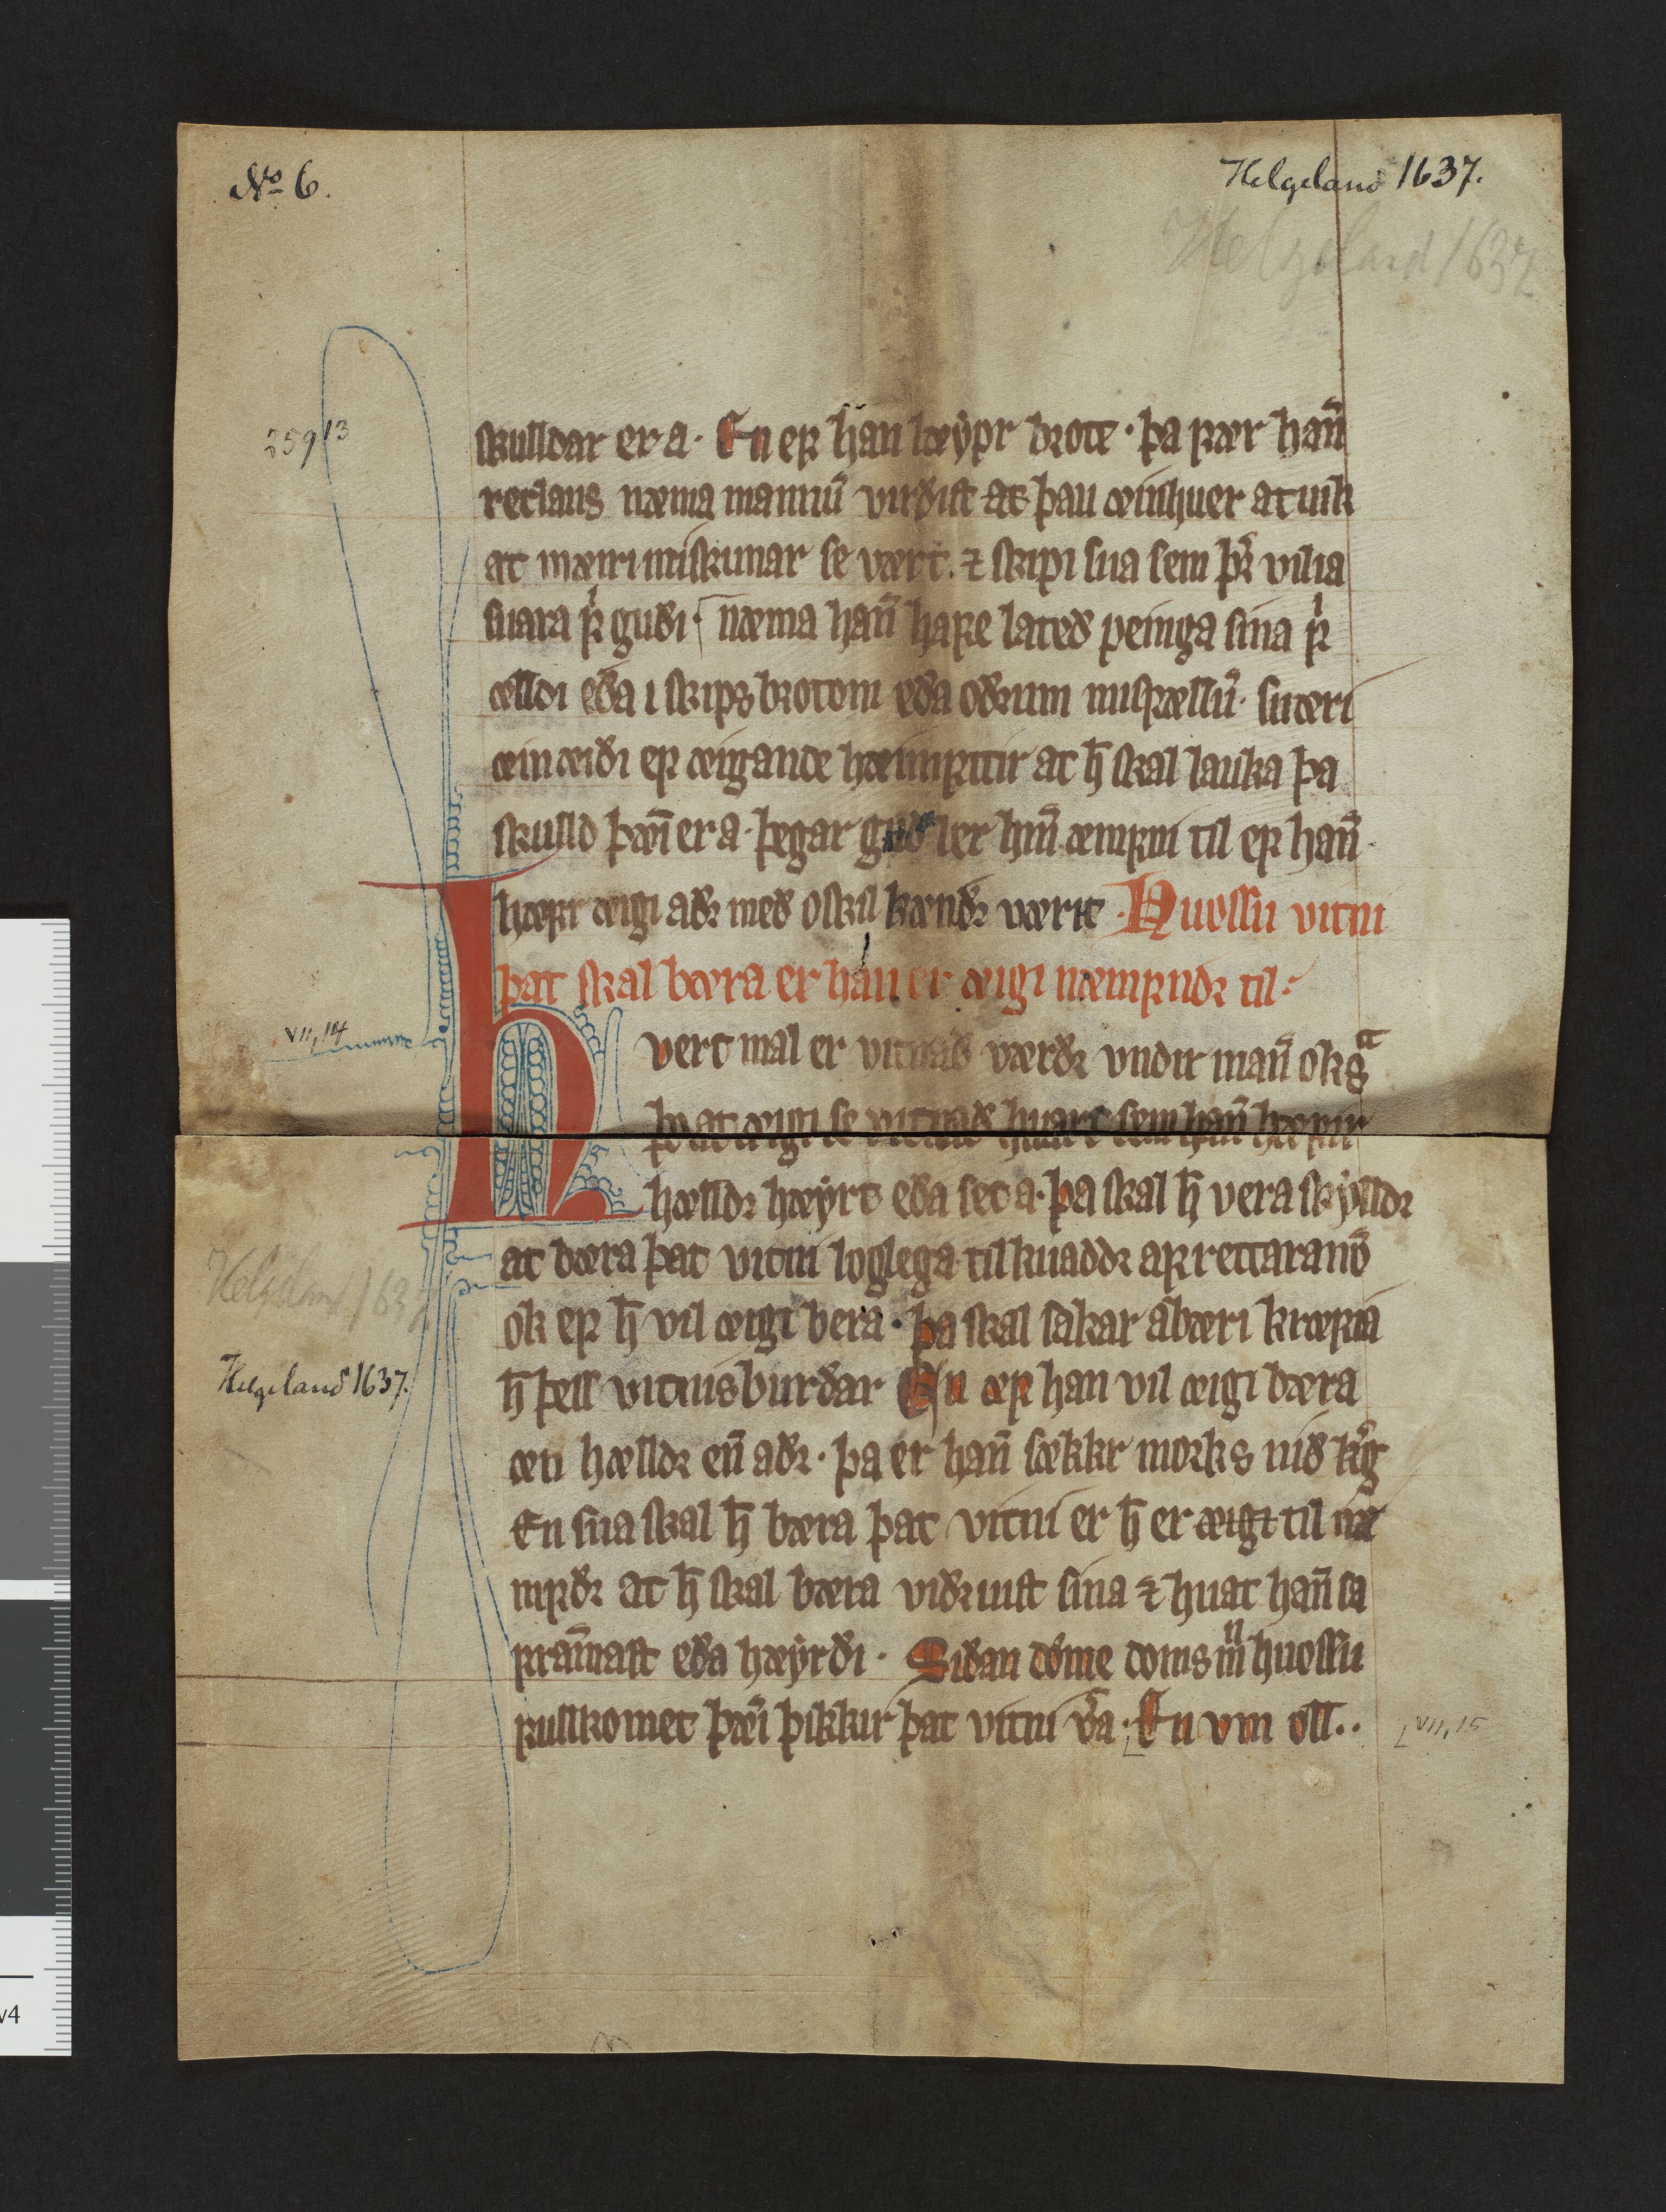 No 6.
Helgeland 1637.
Helgeland 1637
259 13
skulldar er a. En ef han løypr brote · þa fær han̄
retlaus næma mannū virðiſt at þau æinhuer atuik
at mæiri miskunar se vært. ⁊ skipi sua sem þr̄ vilia
suara f̍ guði · næma han̄ hafe lateð peinga sina f̍
ælldi eða i skips brotom eða oðrum misfællū · suæri
æin æiði ef æigande hæimfttir at h̄ skal lauka þa
skulld þæi er a · þegar guð ler hm̄ æmfni til ef han̄
hæfir æigi aðꝛ með oskil kænðꝛ værit · Huossu vitni
þat skal bæra er han er æigi næmfndꝛ til ·
hvert mal er vitnað værðꝛ vndir man̄ ok sa
þo at æigi se vitnað huart sem han̄ hæfir
hælldꝛ høyrt eða set a · þa skal h̄ vera skylldꝛ
at bæra þat vitni loglega til kuaddꝛ af rettaranō
ok ef h̄ vil æigi bera · þa skal sakar abæri kræfia
h̄ þess vitnisburðar En æf han vil æigi bæra
æn hælldꝛ en̄ aðꝛ · þa er han̄ sækkr morks við kḡ
En sua skal h̄ bæra þat vitni er h̄ er æigi til næ
mfdꝛ at h̄ skal bæra viðruist sina ⁊ huat han̄ sa
fram̄aſt eða høyrði · Siðan dōme doms m̄ huossu
fullkomet þæi þikkir þat vitni v̄a · En vm oll ··
VII, 14
Helgeland 1637
Helgeland 1637.
VII, 15
v4